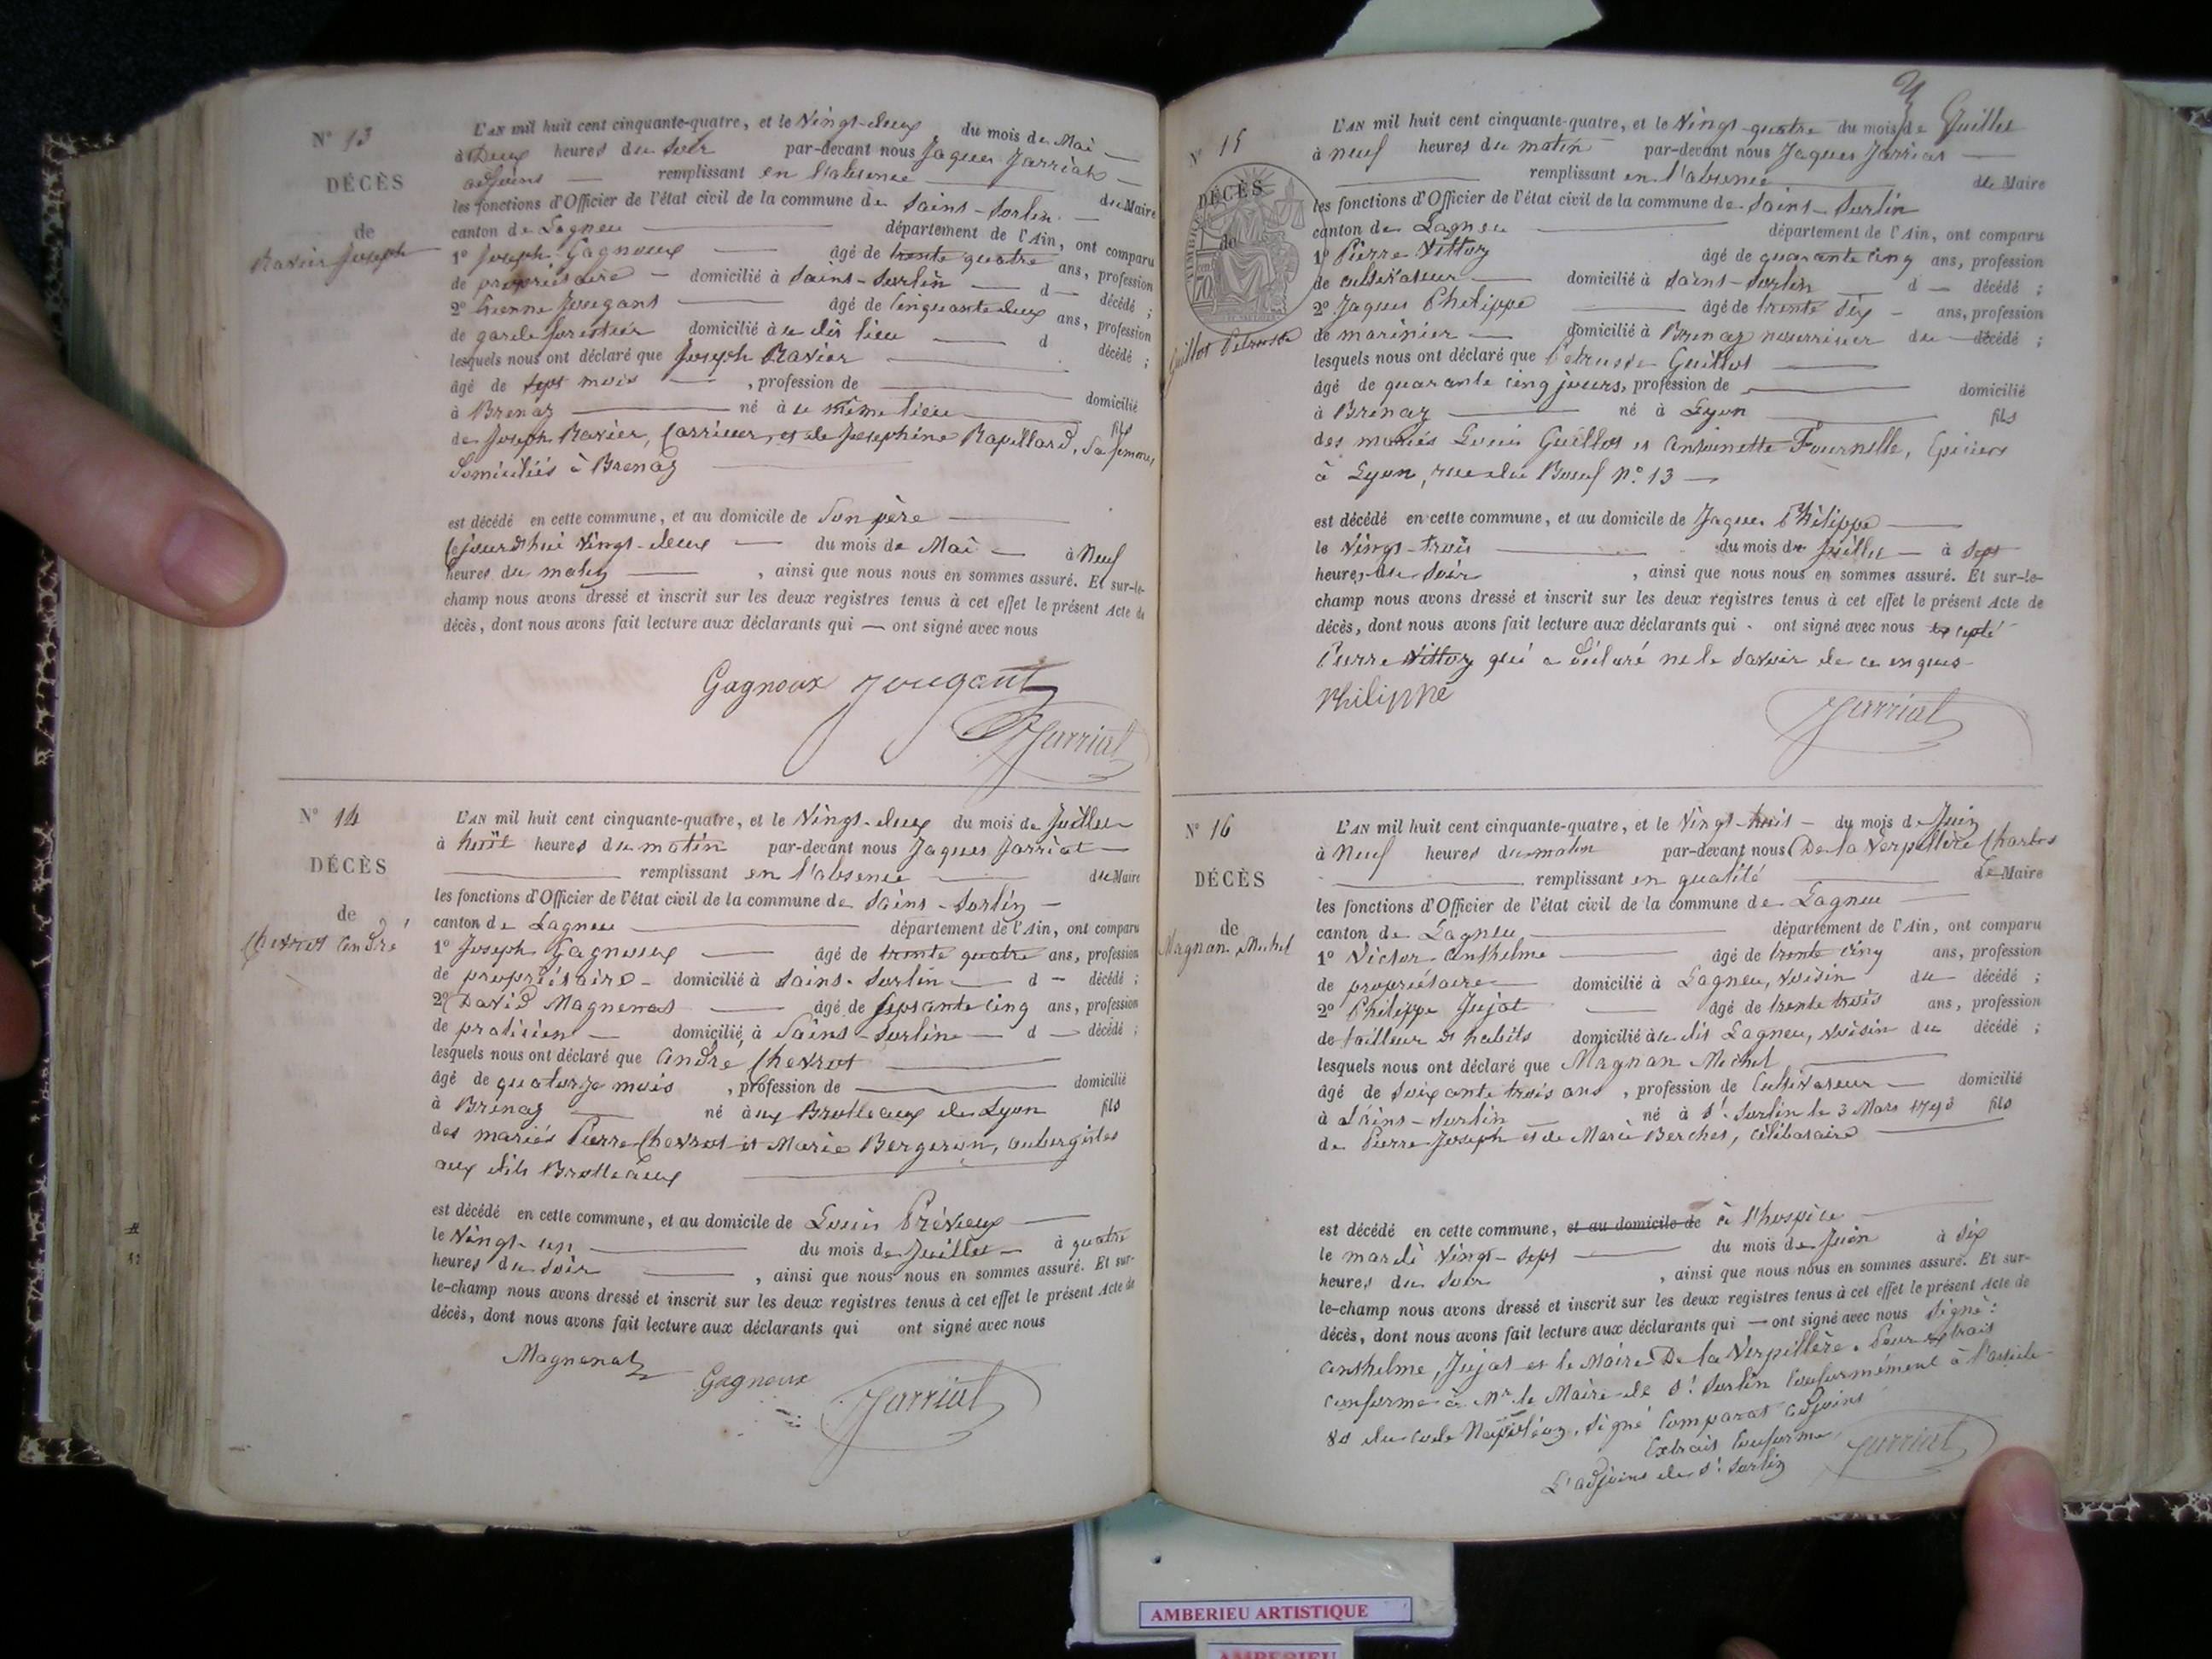 N° 13
DÉCÈS
de
Ravier Joseph
L'AN mil huit cent cinquante-quatre, et le Vingt-deux du mois de Mai
à Deux heures du Soir par-devant nous Jaques Jarriat
adjoint remplissant en l'absence du Maire
les fonctions d'Officier de l'état civil de la commune de Saint-Sorlin
canton de Lagneu département de l'Ain, ont comparu
1° Joseph Gagnoux âgé de trente quatre ans, profession
de propriétaire domicilié à Saint-Sorlin d décédé ;
2° Etienne Jougant âgé de Cinquante deux ans, profession
de garde forestier domicilié à ce dit lieu d décédé ;
lesquels nous ont déclaré que Joseph Ravier
âgé de sept mois , profession de domicilié
à Brenaz né à ce même lieu fils
de Joseph Ravier, Carrieur, et de Josephine Rapillard, Sa femme,
Domiciliés à Brenaz
est décédé en cette commune, et au domicile de Son père
Cejourd'hui Vingt-deux du mois de Mai à Neuf
heures du matin , ainsi que nous nous en sommes assuré. Et sur-le-
champ nous avons dressé et inscrit sur les deux registres tenus à cet effet le présent Acte de
décès, dont nous avons fait lecture aux déclarants qui ont signé avec nous
Gagnoux Jougant
Jarriat
N° 14
DÉCÈS
de
Chevrot André
L'AN mil huit cent cinquante-quatre, et le Vingt-deux du mois de Juillet
à huit heures du matin par-devant nous Jaques Jarriat
remplissant en l'absence du Maire
les fonctions d'Officier de l'état civil de la commune de Saint-Sorlin
canton de Lagneu département de l'Ain, ont comparu
1° Joseph Gagnoux âgé de trente quatre ans, profession
de propriétaire domicilié à Saint-Sorlin d décédé ;
2° David Magnenat âgé de Septante cinq ans, profession
de praticien domicilié à Saint-Sorlin d décédé ;
lesquels nous ont déclaré que André Chevrot
âgé de quatorze mois , profession de domicilié
à Brenaz né aux Brotteaux de Lyon fils
des mariés Pierre Chevrot et Marie Bergeron, aubergistes
aux dits Brotteaux
est décédé en cette commune, et au domicile de Louis Prévieux
le Vingt-un du mois de Juillet à quatre
heures du Soir , ainsi que nous nous en sommes assuré. Et sur-
le-champ nous avons dressé et inscrit sur les deux registres tenus à cet effet le présent Acte de
décès, dont nous avons fait lecture aux déclarants qui ont signé avec nous
Magnenat Gagnoux Jarriat
N° 15
DÉCÈS
de
Guillot
L'AN mil huit cent cinquante-quatre, et le Vingt-quatre du mois de Juillet
à neuf heures du matin par-devant nous Jaques Jarriat
remplissant en l'absence du Maire
les fonctions d'Officier de l'état civil de la commune de Saint-Sorlin
canton de Lagneu département de l'Ain, ont comparu
1° Pierre Vittoz âgé de quarante cinq ans, profession
de cultivateur domicilié à Saint-Sorlin d décédé ;
2° Jaques Philippe âgé de trente six ans, profession
de marinier domicilié à Brenaz nourricier du décédé ;
lesquels nous ont déclaré que Guillot
âgé de quarante cinq jours, profession de domicilié
à Brenaz né à Lyon fils
des mariés Louis Guillot et Antoinette Fournelle, Epiciers
à Lyon, rue du Boeuf N° 13
est décédé en cette commune, et au domicile de Jaques Philippe
le Vingt-trois du mois de Juillet à Sept
heures du Soir , ainsi que nous nous en sommes assuré. Et sur-le-
champ nous avons dressé et inscrit sur les deux registres tenus à cet effet le présent Acte de
décès, dont nous avons fait lecture aux déclarants qui ont signé avec nous excepté
Pierre Vittoz qui a déclaré ne le savoir de ce enquis
Philippe Jarriat
N° 16
DÉCÈS
de
Magnan Michel
L'AN mil huit cent cinquante-quatre, et le Vingt-huit du mois de Juin
à Neuf heures du matin par-devant nous De la Verpillière Charles
remplissant en qualité de Maire
les fonctions d'Officier de l'état civil de la commune de Lagneu
canton de Lagneu département de l'Ain, ont comparu
1° Victor Anthelme âgé de trente cinq ans, profession
de propriétaire domicilié à Lagneu, voisin du décédé ;
2° Philippe Jujat âgé de trente trois ans, profession
de tailleur d'habits domicilié à ce dit Lagneu, voisin du décédé ;
lesquels nous ont déclaré que Magnan Michel
âgé de soixante trois ans , profession de Cultivateur domicilié
à Saint-Sorlin né à St Sorlin le 3 Mars fils
de Pierre Joseph et de Marie Berchet, célibataire
est décédé en cette commune, et au domicile de à l'hospice
le mardi Vingt-Sept du mois de Juin à Six
heures du Soir , ainsi que nous nous en sommes assuré. Et sur-
le-champ nous avons dressé et inscrit sur les deux registres tenus à cet effet le présent Acte de
décès, dont nous avons fait lecture aux déclarants qui ont signé avec nous Signé :
Anthelme, Jujat et le Maire De la Verpillière. Pour extrait
conforme à Mr le Maire de St Sorlin Conformément à l'article
80 du code Napoléon, Signé Comparat Adjoint
Extrait Conforme,
L'adjoint de St Sorlin Jarriat
AMBERIEU ARTISTIQUE
AMBERIEU